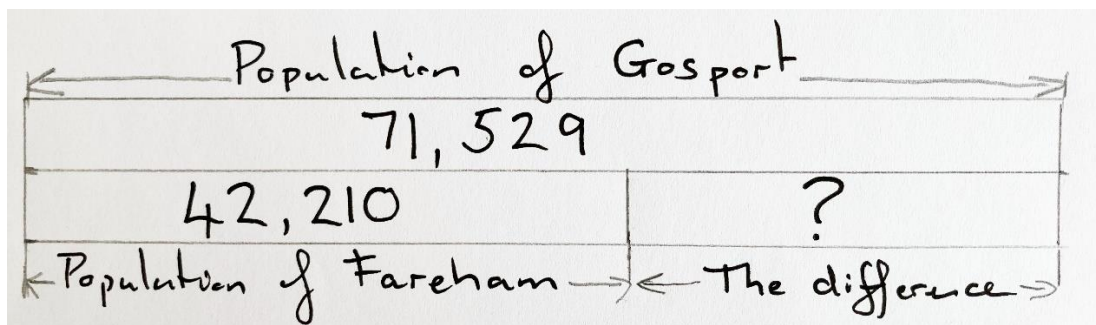 Population of Gosport
71,529
42,210 ?
Population of Fareham The difference